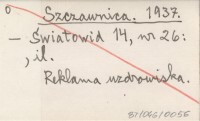 Szczawnica. 1937.
– Światowid 14, nr 26:
, il.
Reklama uzdrowiska.